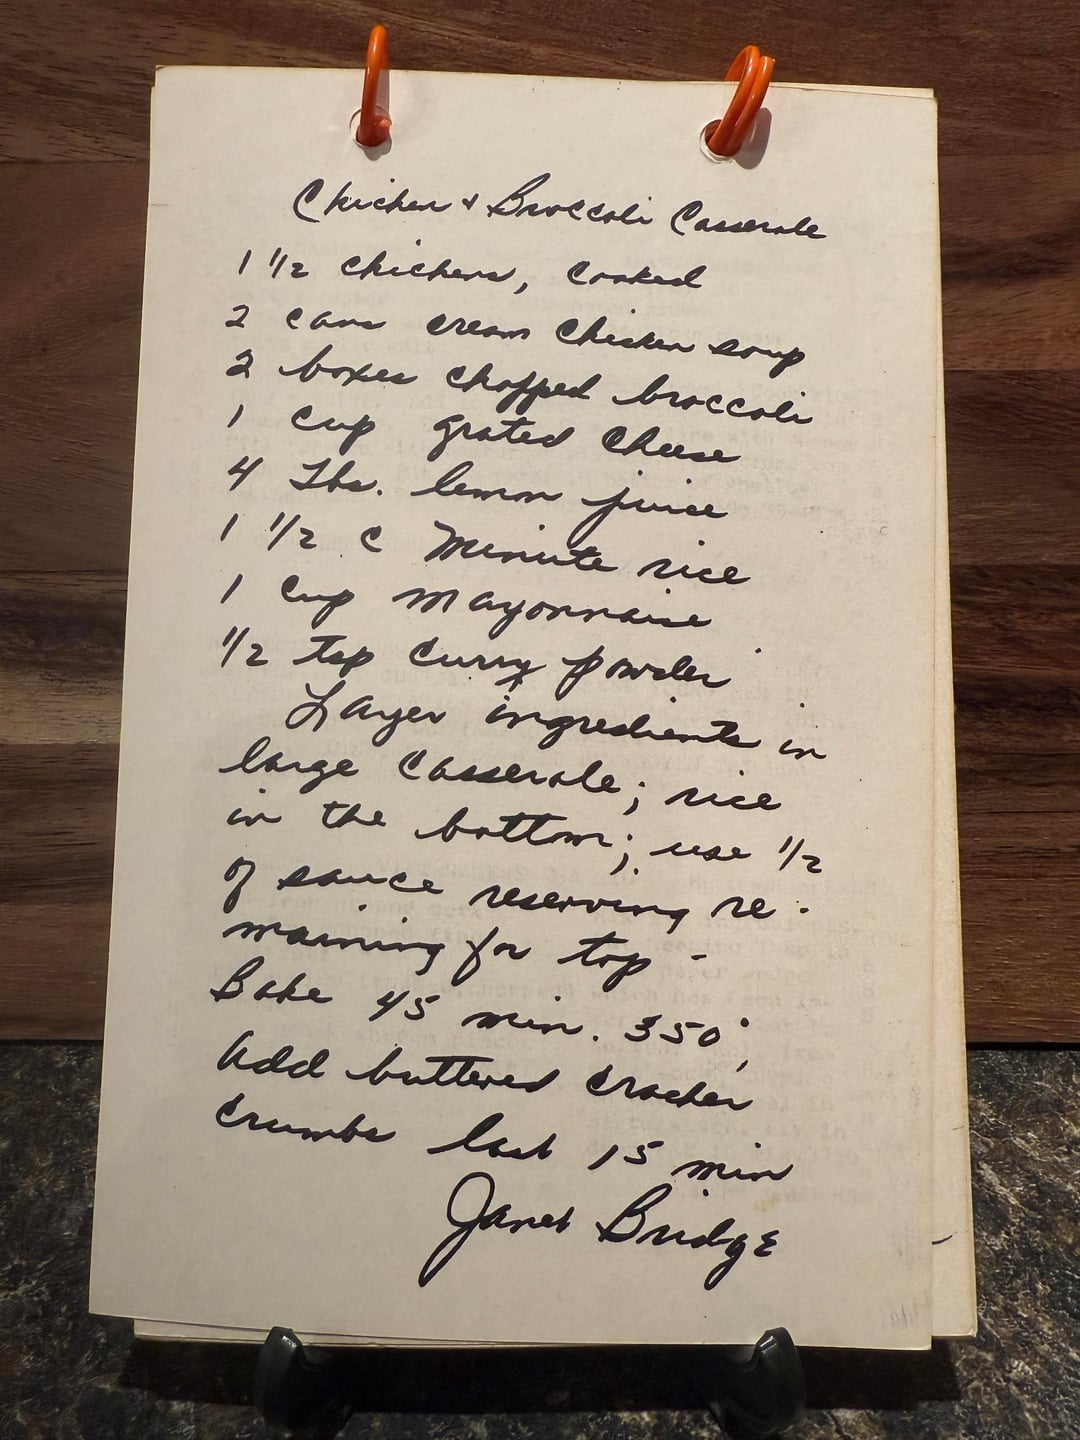 Chicken & Broccoli Casserole
1 1/2 chickens, cooked
2 cans cream chicken soup
2 boxes chopped broccoli
1 cup grated cheese
4 Tbs. lemon juice
1 1/2 c Minute rice
1 cup mayonnaise
1/2 tsp curry powder
Layer ingredients in
large casserole; rice
in the bottom; use 1/2
of sauce reserving re-
maining for top -
Bake 45 min. 350°,
Add buttered cracker
crumbs last 15 min
Janet Bridge